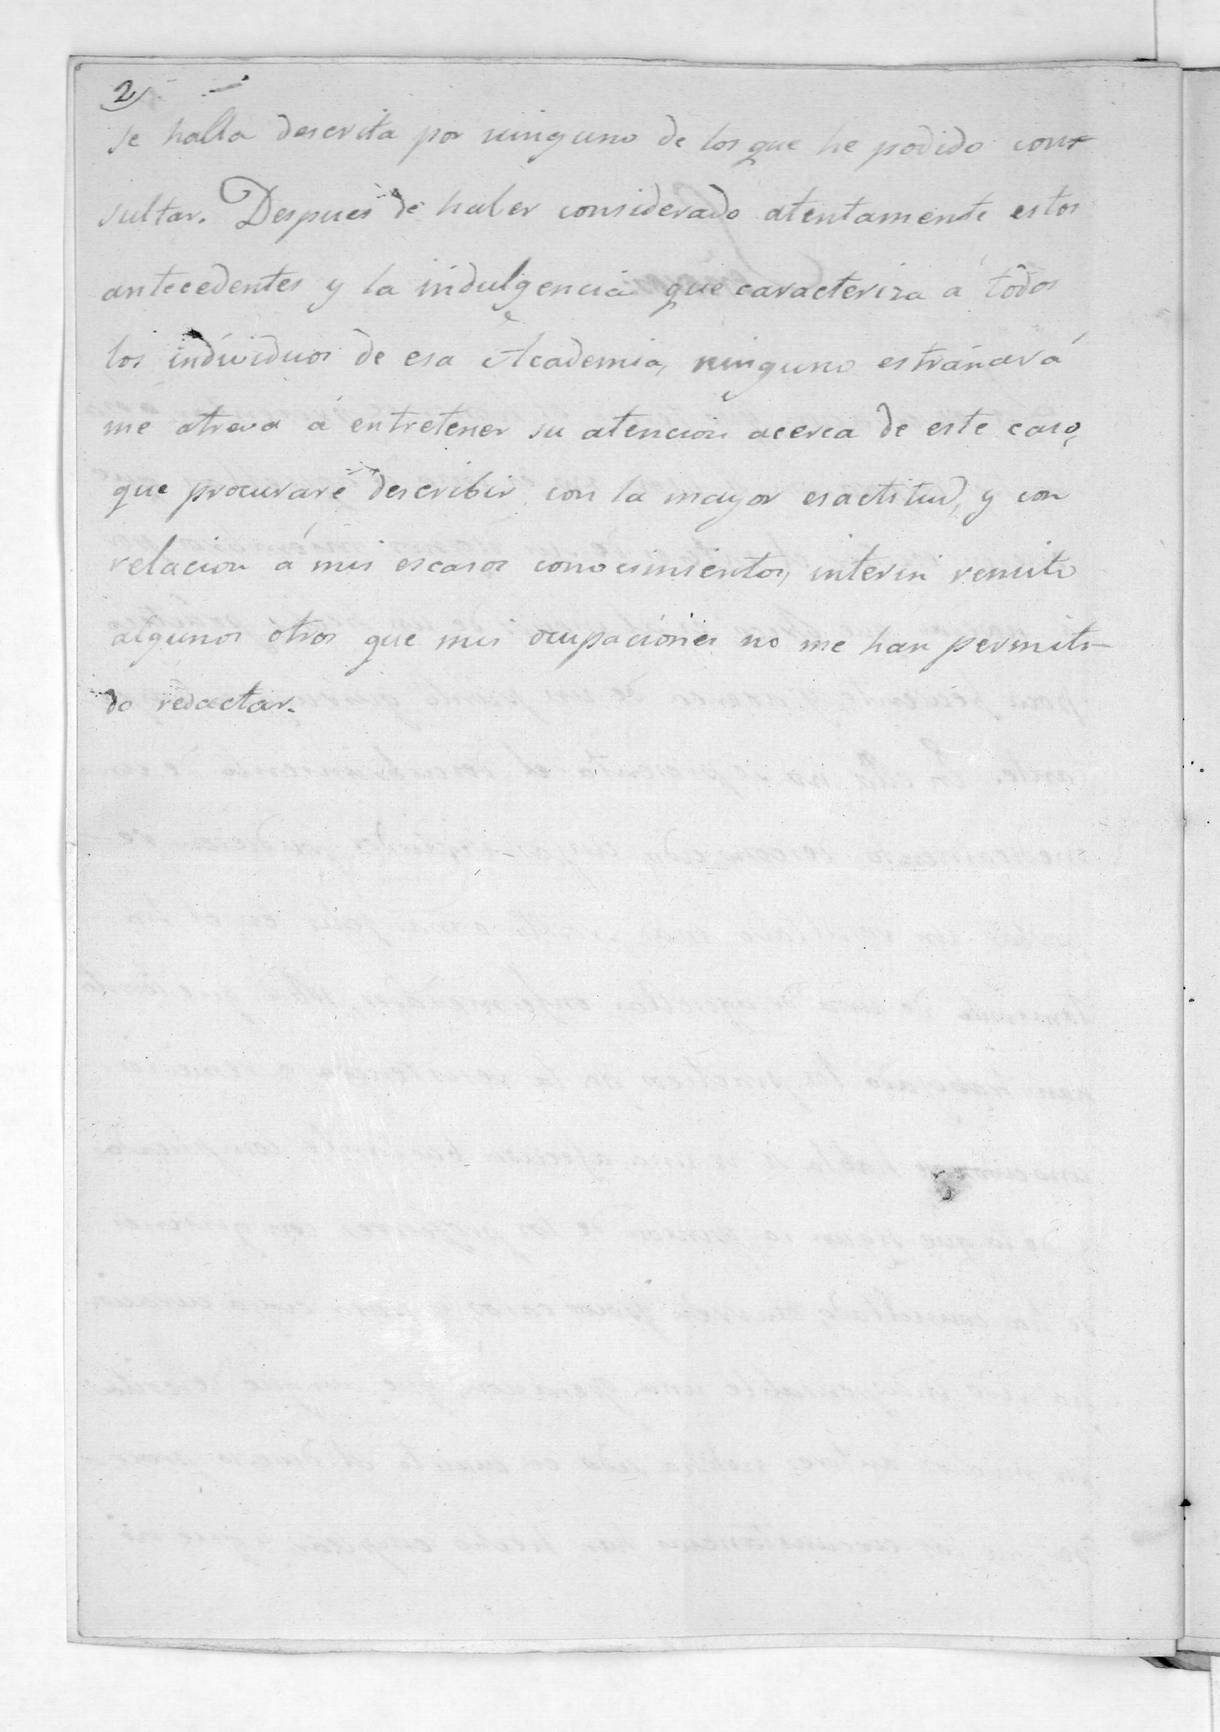 2
se halla descrita por ninguno de los que he podido con-
sultar. Despues de haber considerado atentamente estos
antecedentes y la indulgencia que caracteriza á todos
los individuos de esa Academia, ninguno estrañará
me atreva á entretener su atencion acerca de este caso,
que procuraré describir con la mayor esactitud, y con
relacion á mis escasos conocimientos, interin remito
algunos otros que mis ocupaciones no me han permiti-
do redactar.